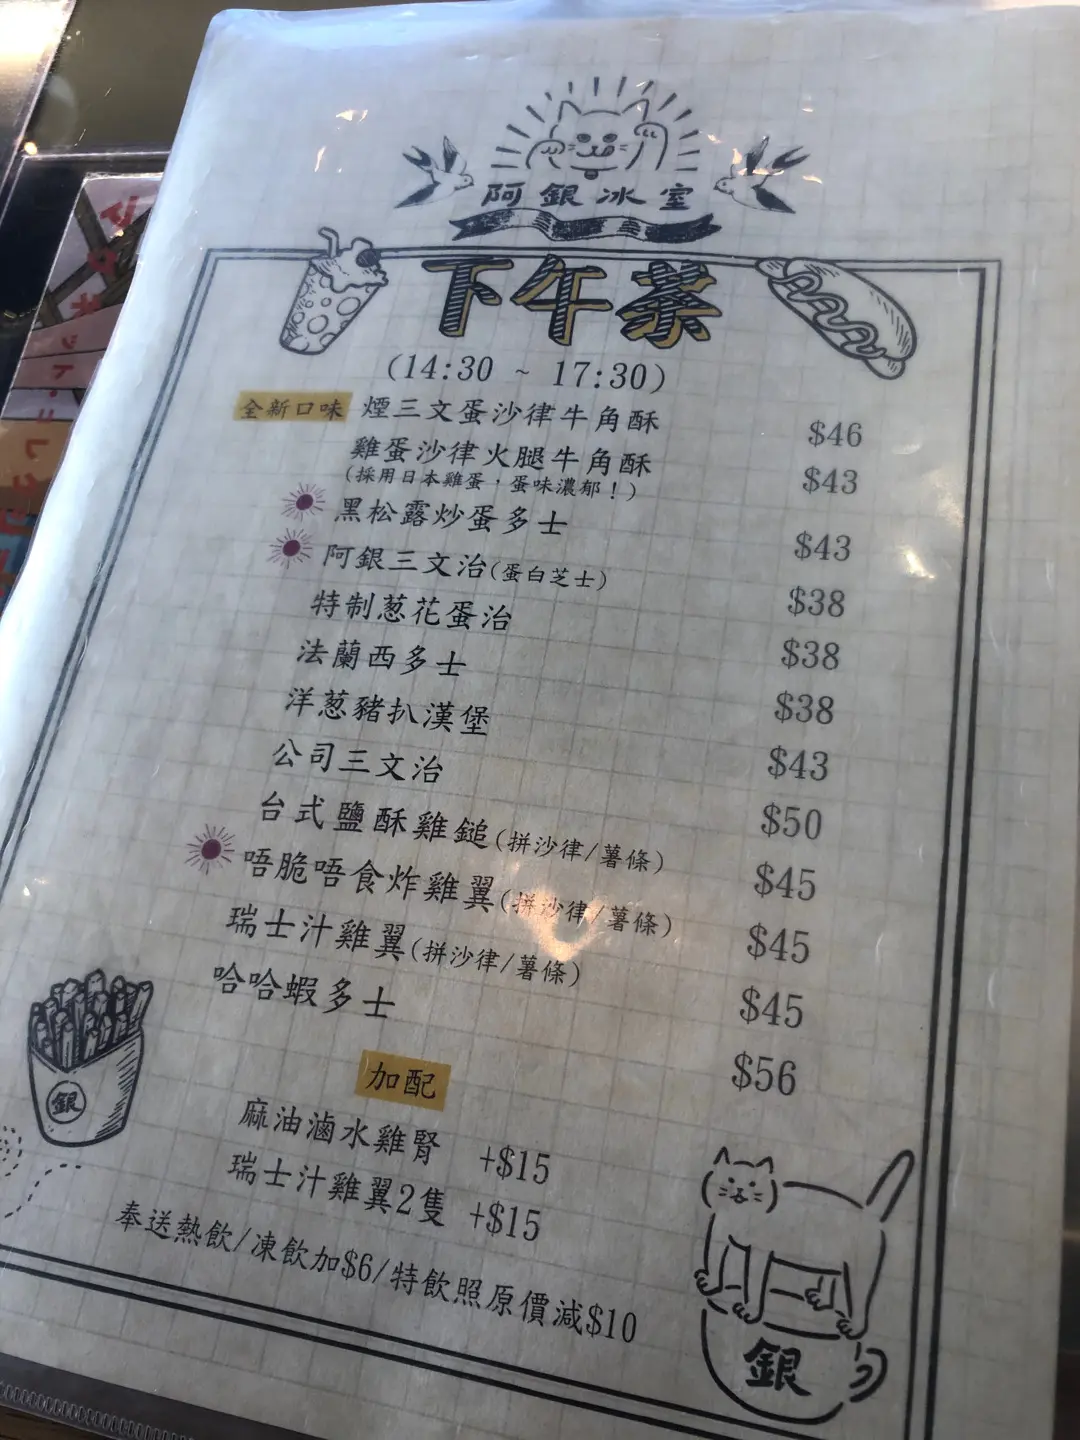 阿銀冰室
下午茶
(14:30 ~ 17:30)
全新口味 煙三文蛋沙律牛角酥 $46
雞蛋沙律火腿牛角酥 $43
(採用日本雞蛋，蛋味濃郁！)
黑松露炒蛋多士 $43
阿銀三文治(蛋白芝士) $38
特制葱花蛋治 $38
法蘭西多士 $38
洋葱豬扒漢堡 $43
公司三文治 $50
台式鹽酥雞鎚(拼沙律/薯條) $45
唔脆唔食炸雞翼(拼沙律/薯條) $45
瑞士汁雞翼(拼沙律/薯條) $45
哈哈蝦多士 $56
銀
加配
麻油滷水雞腎 +$15
瑞士汁雞翼2隻 +$15
奉送熱飲/凍飲加$6/特飲照原價減$10
銀